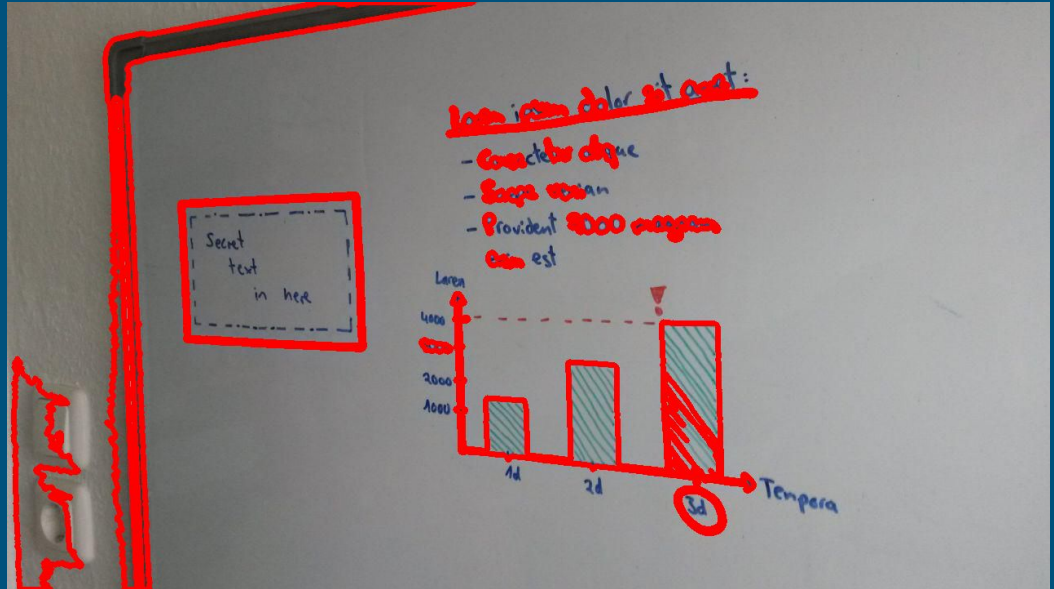 Lorem ipsum dolor sit amet:
- Consectetur
- Saepe
- Provident 8000 program
est
Secret
text
in here
Lorem
4000
2000
1000
1d
2d
3d
Tempora